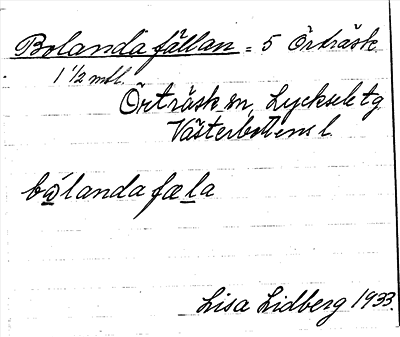 Bolandafällan = 5 Örträsk
1 1/2 mtl.
Örträsk sn, Lycksele tg
Västerbottens l.
bó̲landafæl̲a
Lisa Lidberg 1933.